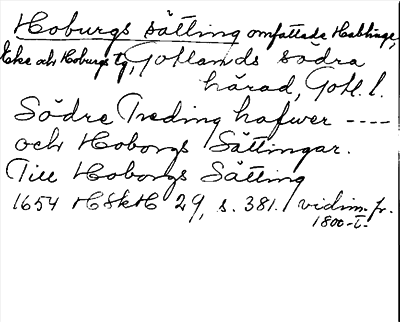 Hoburgs sätting omfattade Hablinge,
Eke och Hoburgs tg, Gotlands södra
härad, Gotl. l.
Södre Treding hafwer ----
och Hoborgs Sättingar.
Till Hoborgs Sätting
1654 HSkH 29, s. 381. vidim. fr.
1800-t.